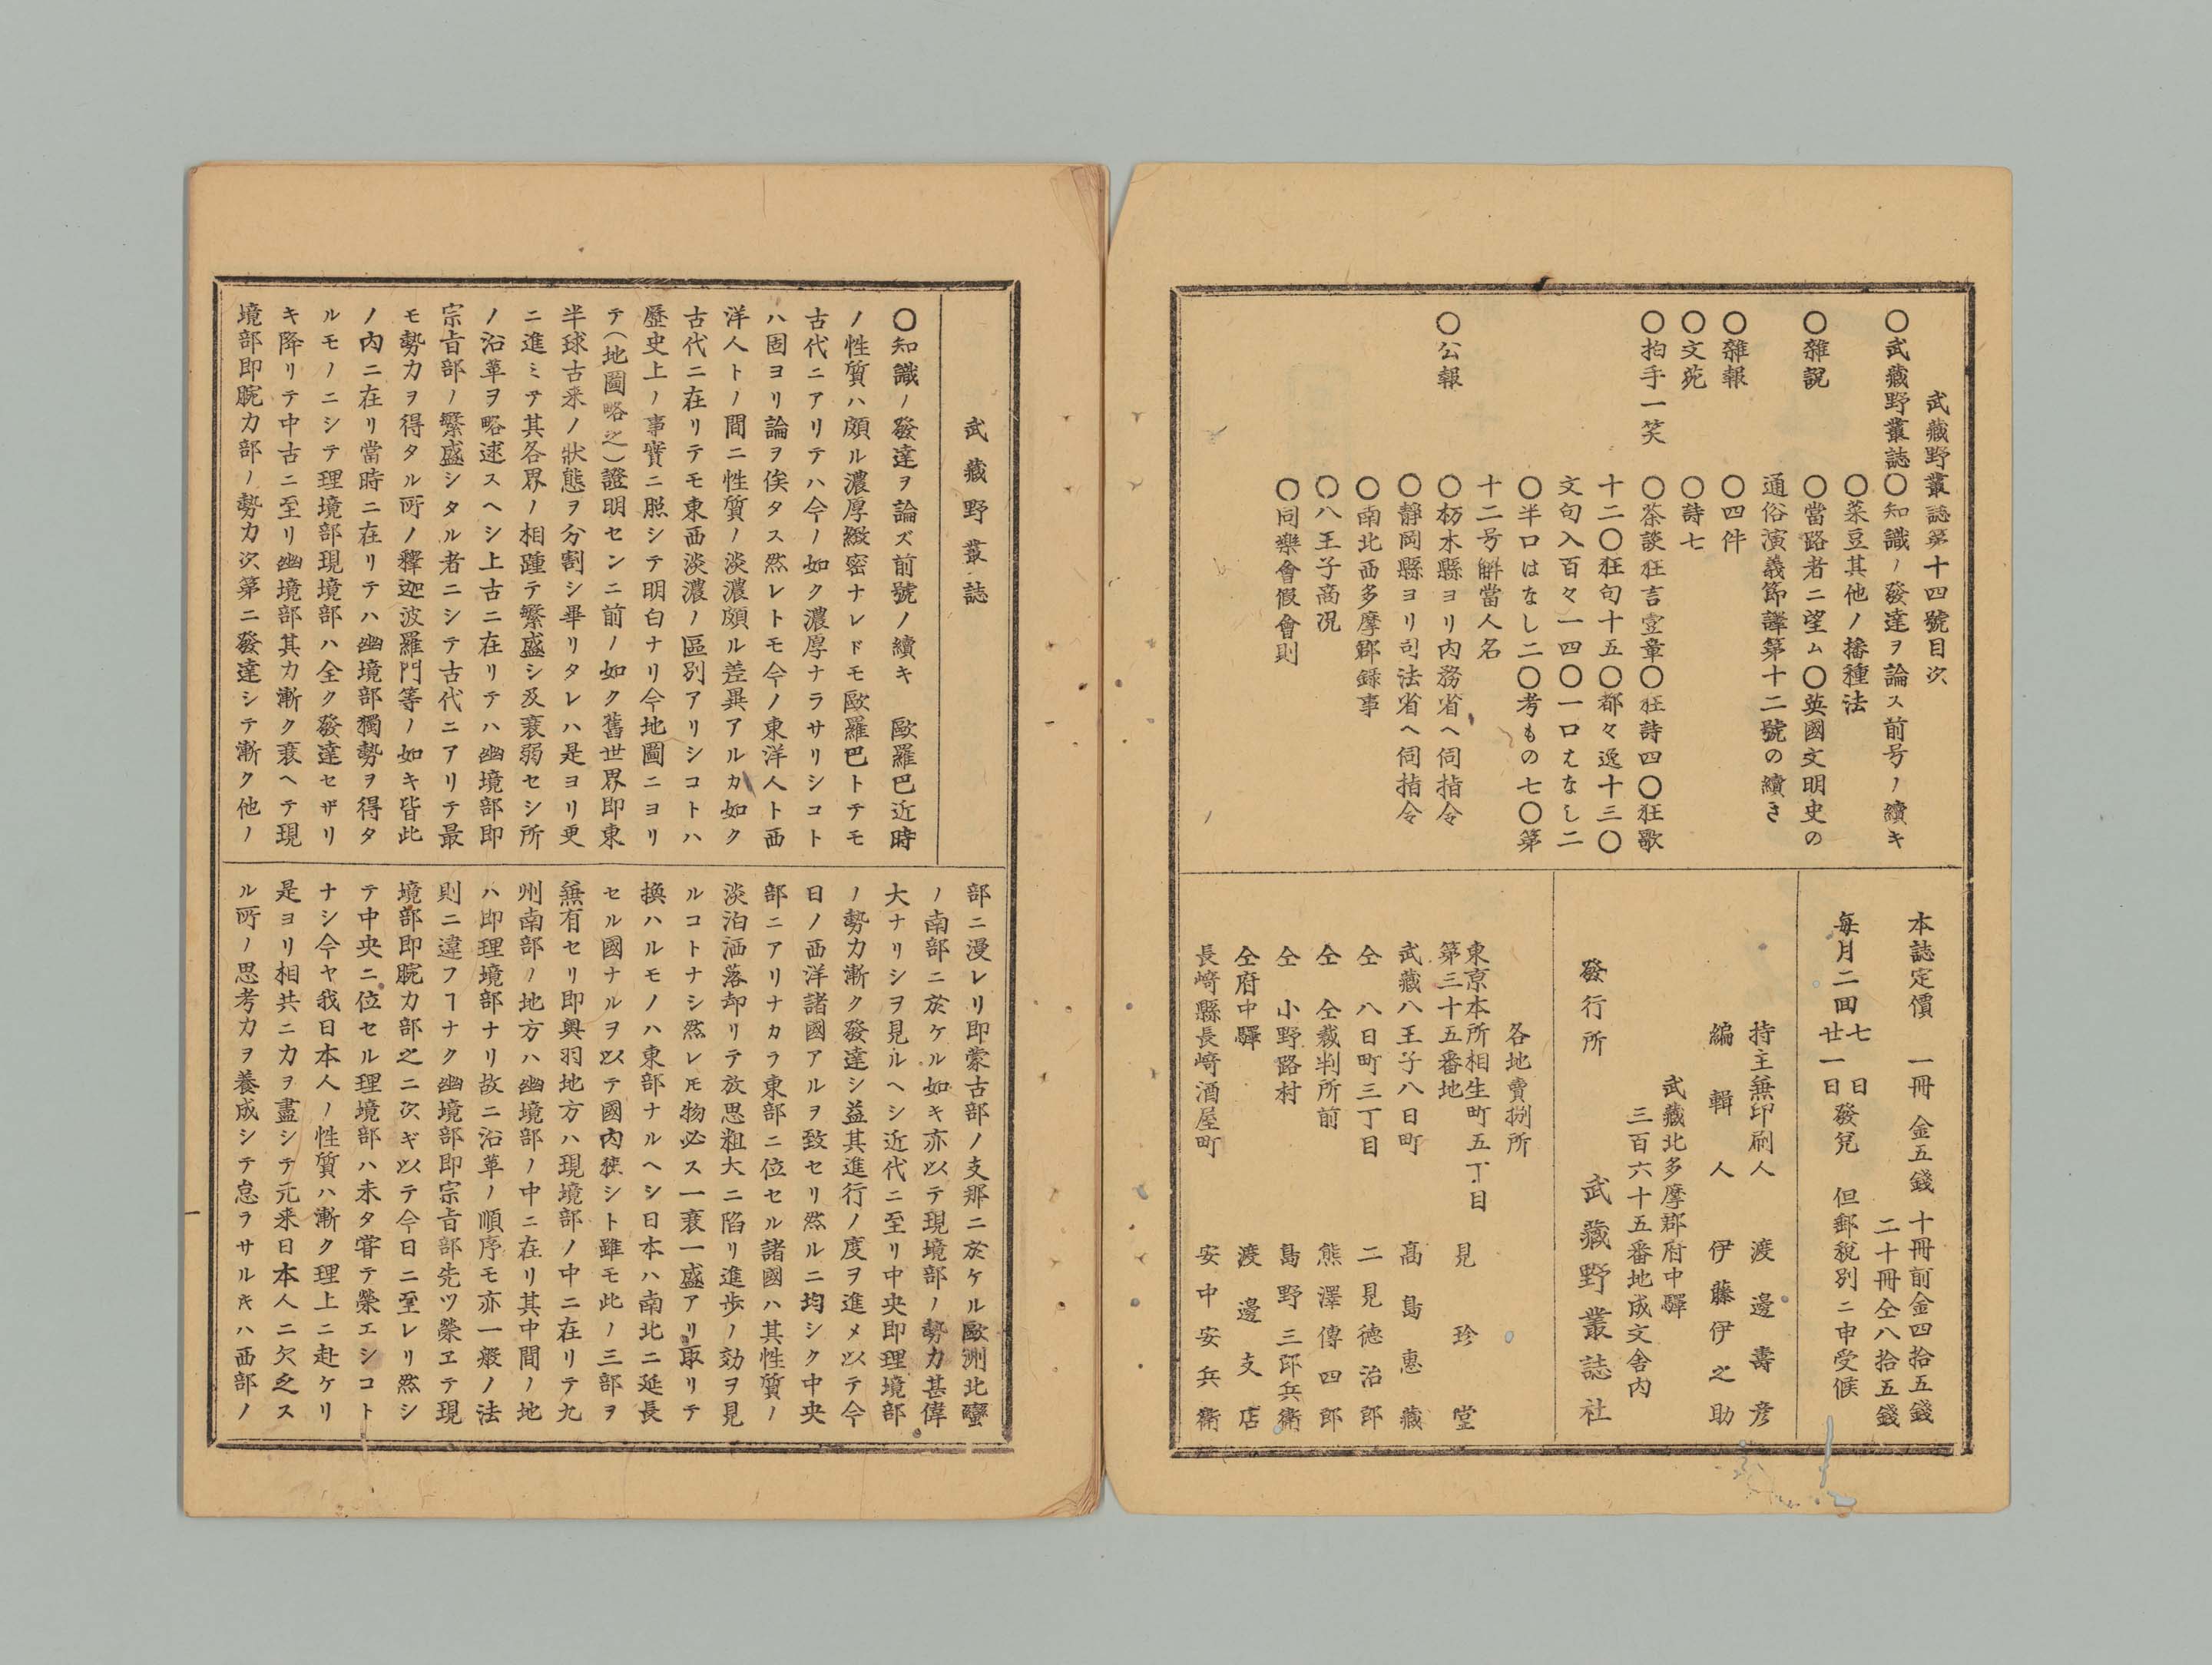 武藏野叢誌第十四號目次
〇武藏野叢誌〇知識ノ發達ヲ論ス前号ノ續キ
〇菜豆其他ノ播種法
〇雜説
〇當路者ニ望ム〇英國文明史の
通俗演義節譯第十二號の續き
〇雜報
〇四件
〇文苑
〇詩七
〇拍手一笑
〇茶談狂言壹章〇狂詩四〇狂歌
十二〇狂句十五〇都々逸十三〇
文句入百々一四〇一口はなし二
〇半口はなし二〇考もの七〇第
十二号觧當人名
〇公報
〇栃木縣ヨリ内務省ヘ伺指令
〇靜岡縣ヨリ司法省ヘ伺指令
〇南北西多摩郡録事
〇八王子商况
〇同樂會假會則
本誌定價　一冊　金五錢　十冊前金四拾五錢
二十冊仝八拾五錢
毎月二回七日廿一日發兌　但郵税別ニ申受候
持主兼印刷人　渡邊壽彦
編輯人　伊藤伊之助
武藏北多摩郡府中驛
三百六十五番地成文舍内
發行所　武藏野叢誌社
各地賣捌所
東京本所相生町五丁目
第三十五番地　見珍堂
武藏八王子八日町　高島惠藏
仝　八日町三丁目　二見徳治郎
仝　仝裁判所前　熊澤傳四郎
仝　小野路村　島野三郎兵衛
仝府中驛　渡邊支店
長崎縣長崎酒屋町　安中安兵衛
武藏野叢誌
〇知識ノ發達ヲ論ズ前號ノ續キ　歐羅巴近時
ノ性質ハ頗ル濃厚緻密ナレドモ歐羅巴トテモ
古代ニアリテハ今ノ如ク濃厚ナラサリシコト
ハ固ヨリ論ヲ俟タス然レトモ今ノ東洋人ト西
洋人トノ間ニ性質ノ淡濃頗ル差異アルカ如ク
古代ニ在リテモ東西淡濃ノ區別アリシコトハ
歷史上ノ事實ニ照シテ明白ナリ今地圖ニヨリ
テ（地圖略之）證明センニ前ノ如ク舊世界即東
半球古来ノ狀態ヲ分割シ畢リタレハ是ヨリ更
ニ進ミテ其各界ノ相踵テ繁盛シ及衰弱セシ所
ノ沿革ヲ略述スヘシ上古ニ在リテハ幽境部即
宗旨部ノ繁盛シタル者ニシテ古代ニアリテ最
モ勢力ヲ得タル所ノ釋迦波羅門等ノ如キ皆此
ノ内ニ在リ當時ニ在リテハ幽境部獨勢ヲ得タ
ルモノニシテ理境部現境部ハ全ク發達セザリ
キ降リテ中古ニ至リ幽境部其力漸ク衰ヘテ現
境部即腕力部ノ勢力次第ニ發達シテ漸ク他ノ
部ニ漫レリ即蒙古部ノ支那ニ於ケル歐洲北蠻
ノ南部ニ於ケル如キ亦以テ現境部ノ勢力甚偉
大ナリシヲ見ルヘシ近代ニ至リ中央即理境部
ノ勢力漸ク發達シ益其進行ノ度ヲ進メ以テ今
日ノ西洋諸國アルヲ致セリ然ルニ均シク中央
部ニアリナカラ東部ニ位セル諸國ハ其性質ノ
淡泊洒落却リテ放思粗大ニ陷リ進歩ノ効ヲ見
ルコトナシ然レ𪜈物必ス一衰一盛アリ取リテ
換ハルモノハ東部ナルヘシ日本ハ南北ニ延長
セル國ナルヲ以テ國内狹シト雖モ此ノ三部ヲ
兼有セリ即奥羽地方ハ現境部ノ中ニ在リテ九
州南部ノ地方ハ幽境部ノ中ニ在リ其中間ノ地
ハ即理境部ナリ故ニ沿革ノ順序モ亦一般ノ法
則ニ違フヿナク幽境部即宗旨部先ツ榮ヱテ現
境部即腕力部之ニ次ギ以テ今日ニ至レリ然シ
テ中央ニ位セル理境部ハ未タ甞テ榮エシコト
ナシ今ヤ我日本人ノ性質ハ漸ク理上ニ赴ケリ
是ヨリ相共ニ力ヲ盡シテ元来日本人ニ欠之ス
ル所ノ思考力ヲ養成シテ怠ラサルキハ西部ノ
一